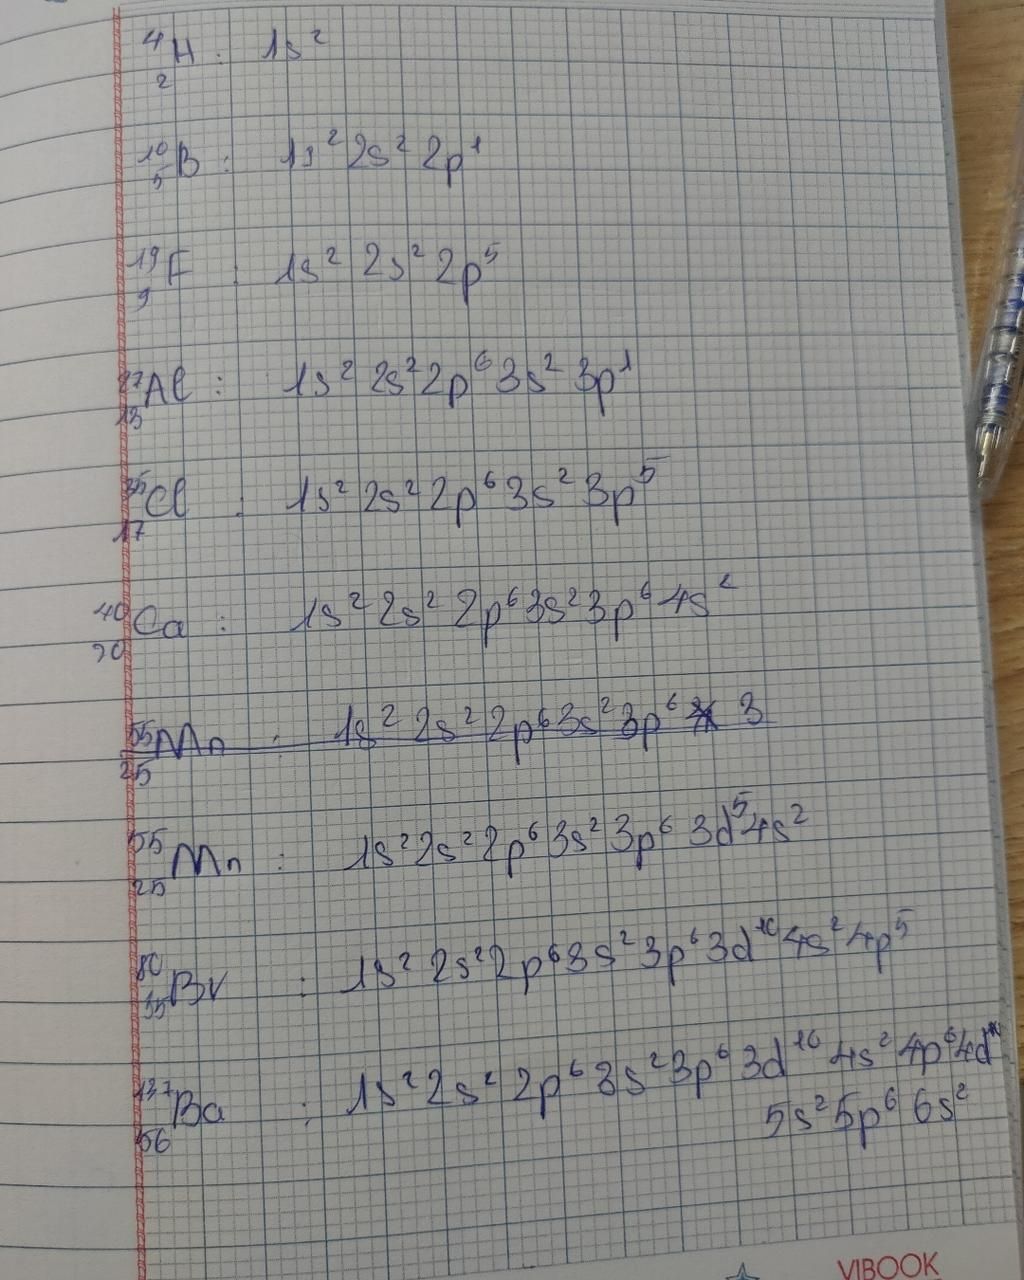 ⁴₂H : 1s²
¹⁰₅B : 1s² 2s² 2p¹
¹⁹₉F : 1s² 2s² 2p⁵
²⁷₁₃Al : 1s² 2s² 2p⁶ 3s² 3p¹
³⁵₁₇Cl : 1s² 2s² 2p⁶ 3s² 3p⁵
⁴⁰₂₀Ca : 1s² 2s² 2p⁶ 3s² 3p⁶ 4s²
⁵⁵₂₅Mn : 1s² 2s² 2p⁶ 3s² 3p⁶ 3
⁵⁵₂₅Mn : 1s² 2s² 2p⁶ 3s² 3p⁶ 3d⁵ 4s²
⁸⁰₃₅Br : 1s² 2s² 2p⁶ 3s² 3p⁶ 3d¹⁰ 4s² 4p⁵
¹³⁷₅₆Ba : 1s² 2s² 2p⁶ 3s² 3p⁶ 3d¹⁰ 4s² 4p⁶ 4d¹⁰
5s² 5p⁶ 6s²
VIBOOK